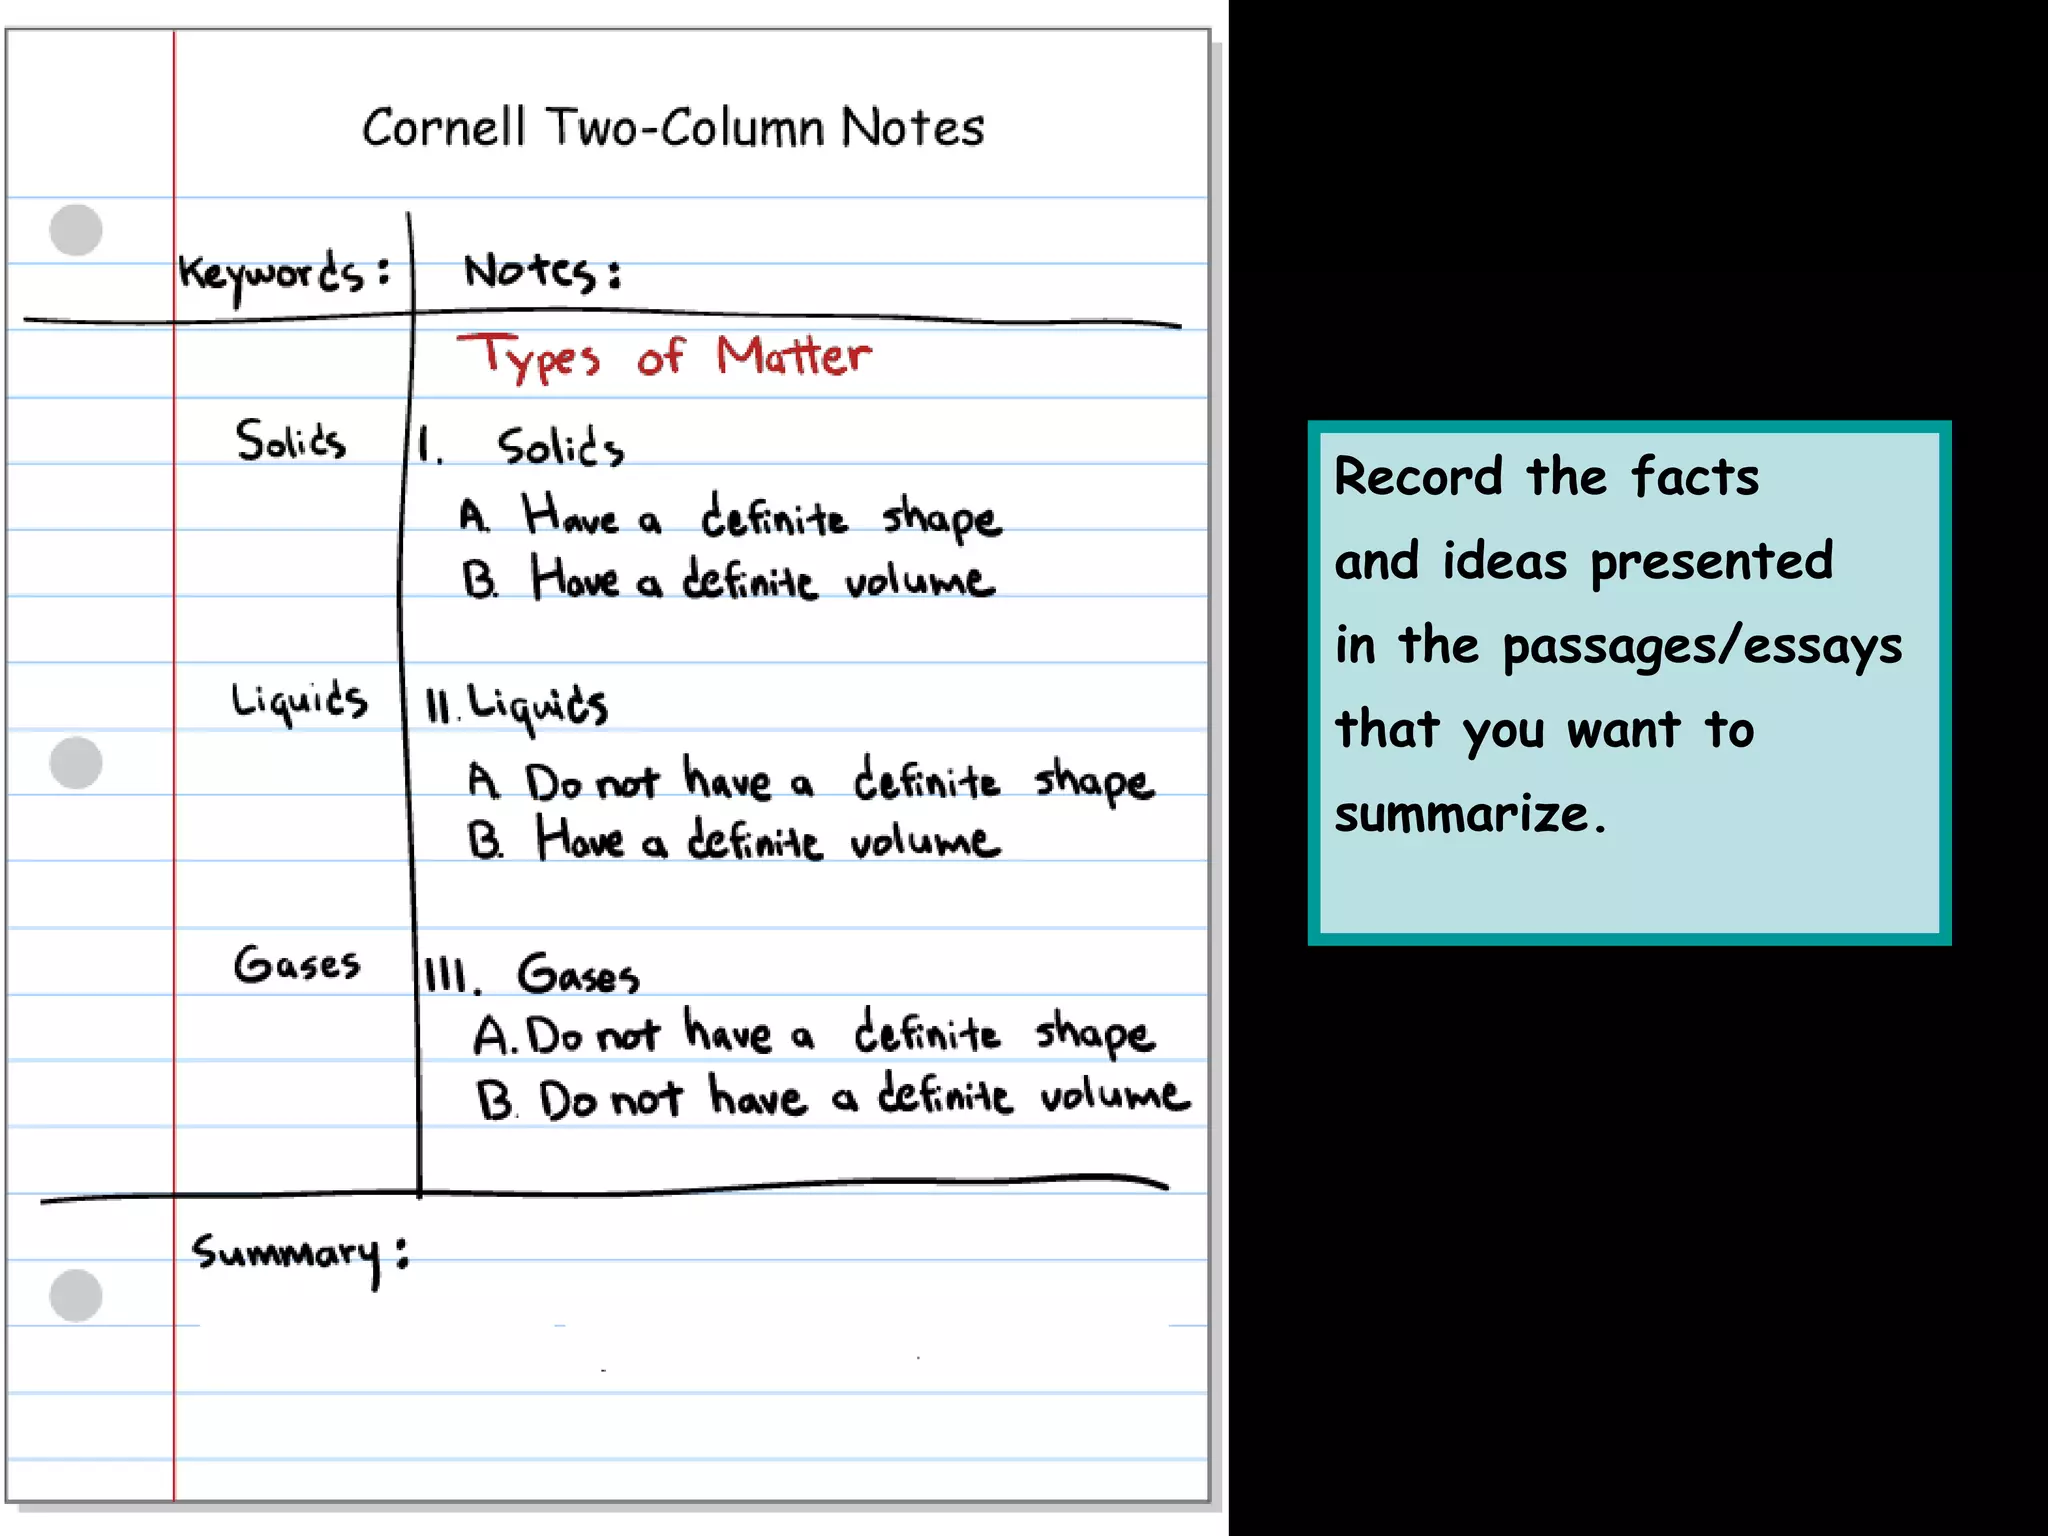 Cornell Two-Column Notes
Keywords: Notes:
Types of Matter
Solids I. Solids
A. Have a definite shape
B. Have a definite volume
Liquids II. Liquids
A. Do not have a definite shape
B. Have a definite volume
Gases III. Gases
A. Do not have a definite shape
B. Do not have a definite volume
Summary:
Record the facts
and ideas presented
in the passages/essays
that you want to
summarize.